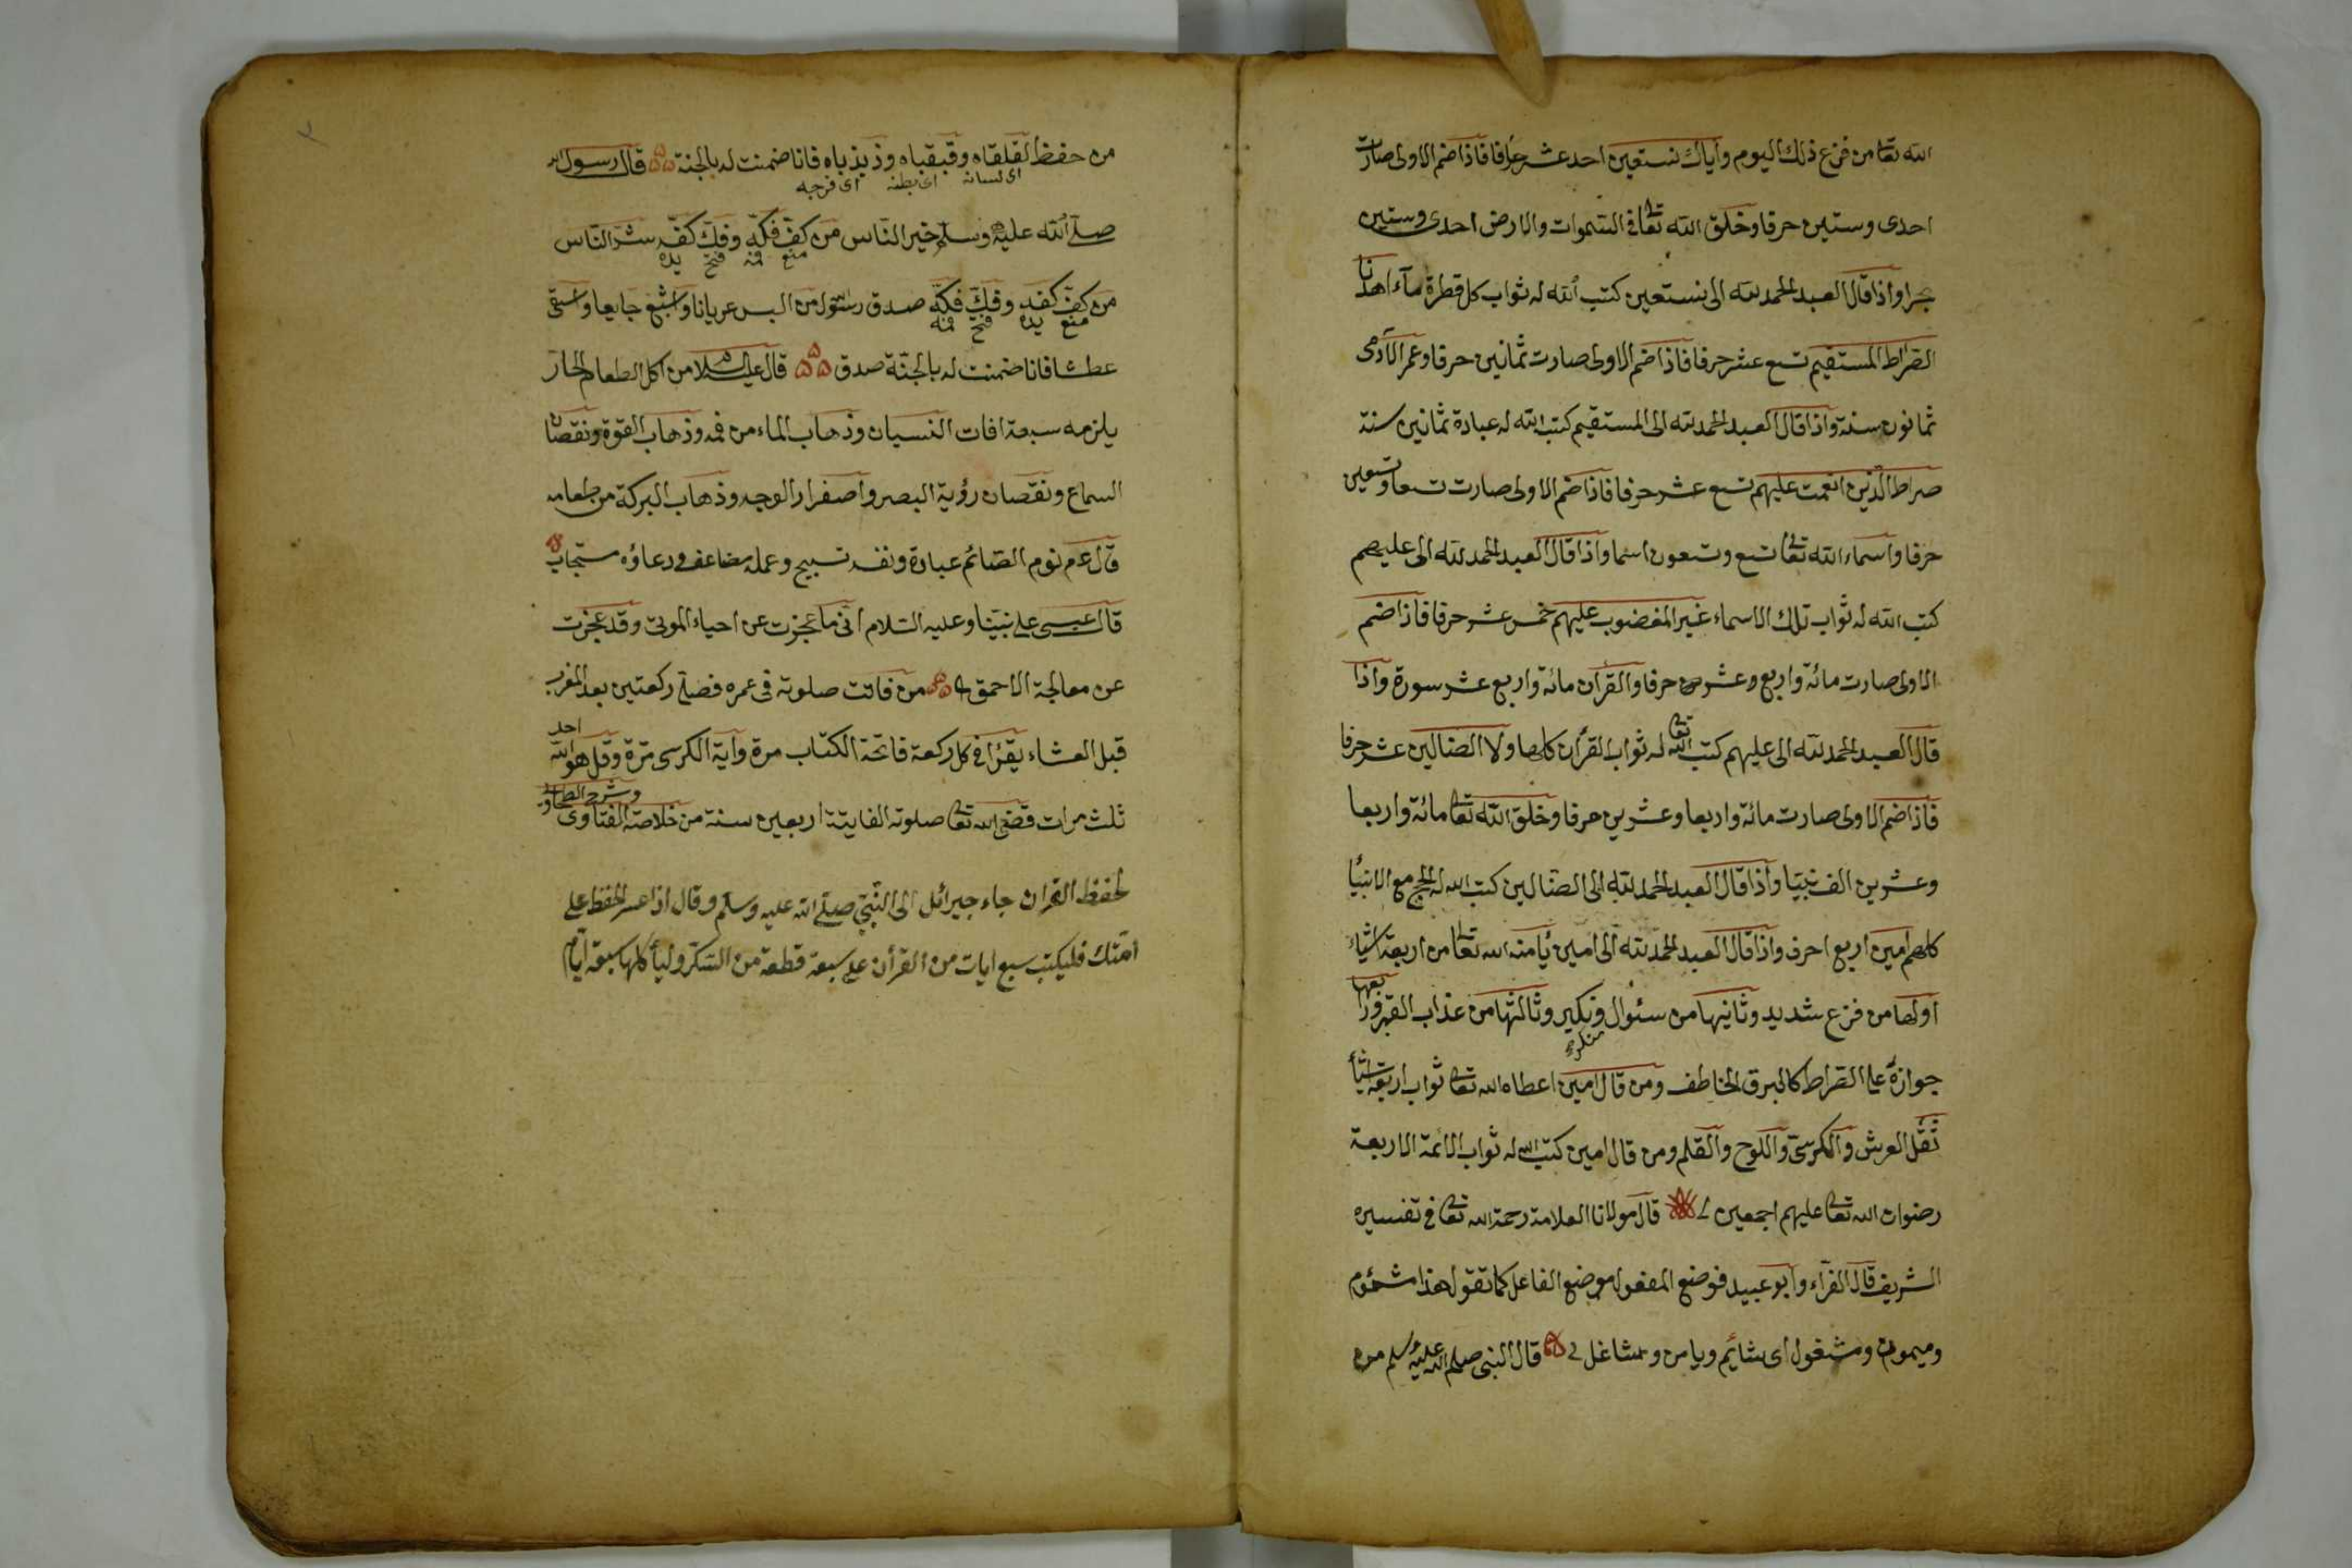 الله تعا من فزع ذلك اليوم واياك نستعين احد عشر حرفا فاذا ضم الاولى صارت
احدى وستين حرفا وخلق الله تعالى فى السموات والارض احدى وستين
بحرا واذا قال العبد الحمد لله الى نستعين كتب الله له ثواب كل قطرة مآء اهدنا
الصراط المستقيم تسع عشر حرفا فاذا ضم الاولى صارت ثمانين حرفا وعمر الآدمى
ثمانون سنة واذا قال العبد الحمد لله الى المستقيم كتب الله له عبادة ثمانين سنة
صراط الذين انعمت عليهم تسع عشر حرفا فاذا ضم الاولى صارت تسعا وتسعين
حرفا واسماء الله تعالى تسع وتسعون اسما واذا قال العبد الحمد لله الى عليهم
كتب الله له ثواب تلك الاسماء غير المغضوب عليهم خمس عشر حرفا فاذا ضم
الاولى صارت مائة واربع وعشرين حرفا والقرآن مائة واربع عشر سورة واذا
قال العبد الحمد لله الى عليهم كتب الله تعا له ثواب القرأن كلها ولا الضالين عشر حرفا
فاذا ضم الاولى صارت مائة واربعا وعشرين حرفا وخلق الله تعالى مائة واربعا
وعشرين الف نبيا واذا قال العبد الحمد لله الى الضالين كتب الله له الحج مع الانبيأ
كلهم امين اربع احرف واذا قال العبد الحمد لله الى امين يأمنه الله تعالى من اربعة اشياء
اولها من فزع شديد وثانيها من سئوال منكر ونكير وثالثها من عذاب القبر ورابعها
جوازه على الصراط كالبرق الخاطف ومن قال امين اعطاه الله تعالى ثواب اربعة اشيأ
ثقل العرش والكرسى واللوح والقلم ومن قال امين كتب الله له ثواب الائمة الاربعة
رضوان الله تعالى عليهم اجمعين قال مولانا العلامة رحمة الله تعالى فى تفسيره
الشريف قال الفرآء وابو عبيد فوضع المفعول موضع الفاعل كما تقول هذا مشئوم
وميمون ومشغول اى شايئم ويامن وشاغل قال النبى صلى الله عليه وسلم من
من حفظ لقلقاه وقبقباه وذبذباه فانا ضمنت له بالجنة قال رسول الله
اى لسانه اى بطنه اى فرجه
صلى الله عليه وسلم خير الناس من كفّ فكّه وفكّ كفّه شر الناس
منع فمه فتح يده
من كفّ كفه وفكّ فكّه صدق رسول من البس عريانا واشبع جايعا واسقى
منع يده فتح فمه
عطشا فانا ضمنت له بالجنّة صدق قال عليه السلام من اكل الطعام الحار
يلزمه سبعة افات النسيان وذهاب الماء من فمه وذهاب القوة ونقصان
السماع ونقصان رؤية البصر واصفرار الوجه وذهاب البركة من طعامه
قال عم نوم الصائم عبادة ونفسه تسبيح وعمله مضاعف ودعاؤه مستجاب
قال عيسى على نبينا وعليه السلام انى ما عجزت عن احياء الموتى وقد عجزت
عن معالجة الاحمق من فاتت صلوته فى عمره فصلى ركعتين بعد المغرب
قبل العشاء يقرأ فى كل ركعة فاتحة الكتاب مرة وآية الكرسى مرة وقل هو الله احد
ثلث مرات قضى الله تعالى صلوته الفايتة اربعين سنة من خلاصة الفتاوى وشرح الطحاوى
لحفظ القران جاء جبرائل الى النّبىّ صلى الله عليه وسلم وقال اذا عسر الحفظ على
امتك فليكتب سبع ايات من القرأن على سبعة قطعة من السكّر وليأكلها سبعة ايام